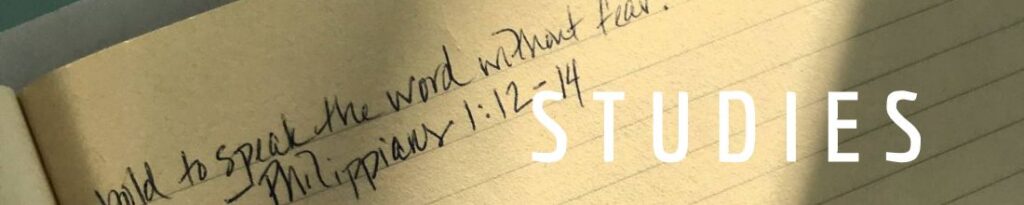 bold to speak the word without fear.
Philippians 1:12-14
STUDIES